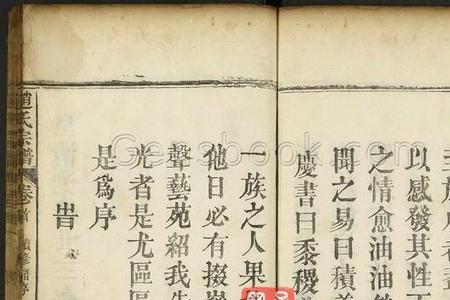 以感發其性
之情愈油油
聞之易曰積善
慶書曰黍稷
一族之人果
他日必有掇
聲藝苑紹我先
光者是尤區區
是爲序
旹
趙氏宗譜
卷首